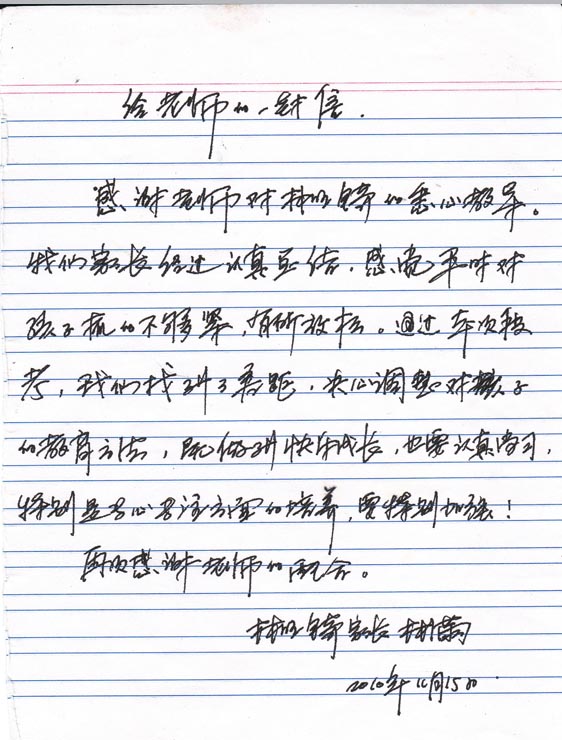 给老师的一封信.
感谢老师对林 的悉心教导。
我们家长经过认真总结，感觉平时对
孩子抓的不够紧，有所放松。通过本次段
考，我们找到了差距，决心调整对孩子
的教育方法，既做到快乐成长，也要认真学习，
特别是专心专注方面的培养，要特别加强！
再次感谢老师的配合。
家长 林
2010年11月15日